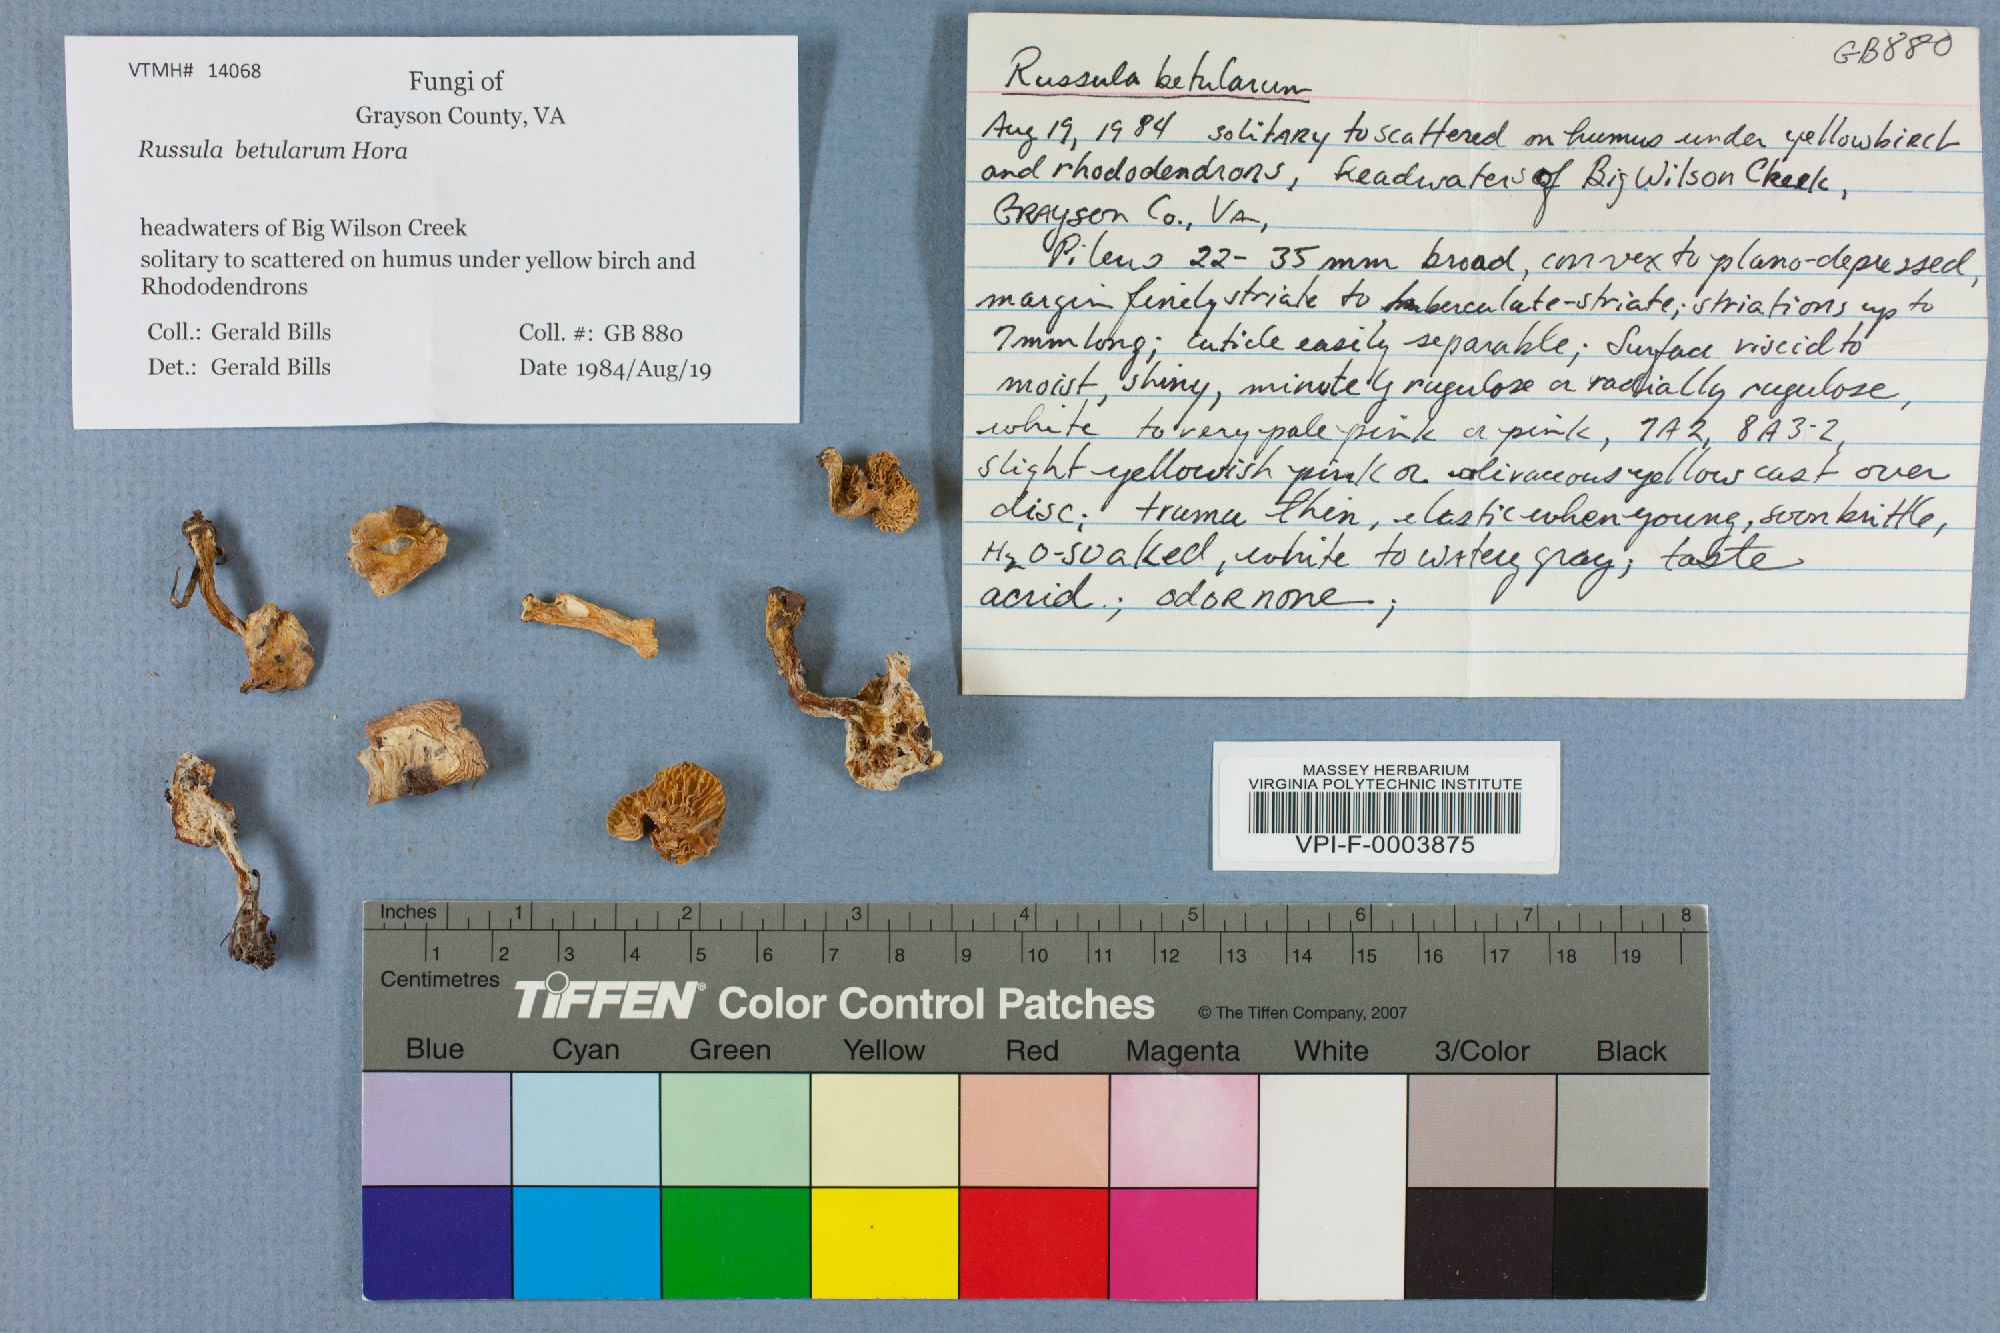 VTMH# 14068
Fungi of
Grayson County, VA
Russula betularum Hora
headwaters of Big Wilson Creek
solitary to scattered on humus under yellow birch and
Rhododendrons
Coll.: Gerald Bills Coll. #: GB 880
Det.: Gerald Bills Date 1984/Aug/19
GB880
Russula betularum
Aug 19, 1984 solitary to scattered on humus under yellow birch
and rhododendrons, headwaters of Big Wilson Creek,
Grayson Co., VA,
Pileus 22-35 mm broad, convex to plano-depressed,
margin finely striate to tuberculate-striate; striations up to
7mm long; cuticle easily separable; Surface viscid to
moist, shiny, minutely rugulose or radially rugulose,
white to very pale pink or pink, 7A2, 8A3-2,
slight yellowish pink or olivaceous yellow cast over
disc; trama thin, elastic when young, soon brittle,
H2O-soaked, white to watery gray; taste
acrid; odor none;
MASSEY HERBARIUM
VIRGINIA POLYTECHNIC INSTITUTE
VPI-F-0003875
Inches 1 2 3 4 5 6 7 8
1 2 3 4 5 6 7 8 9 10 11 12 13 14 15 16 17 18 19
Centimetres
TIFFEN® Color Control Patches © The Tiffen Company, 2007
Blue Cyan Green Yellow Red Magenta White 3/Color Black